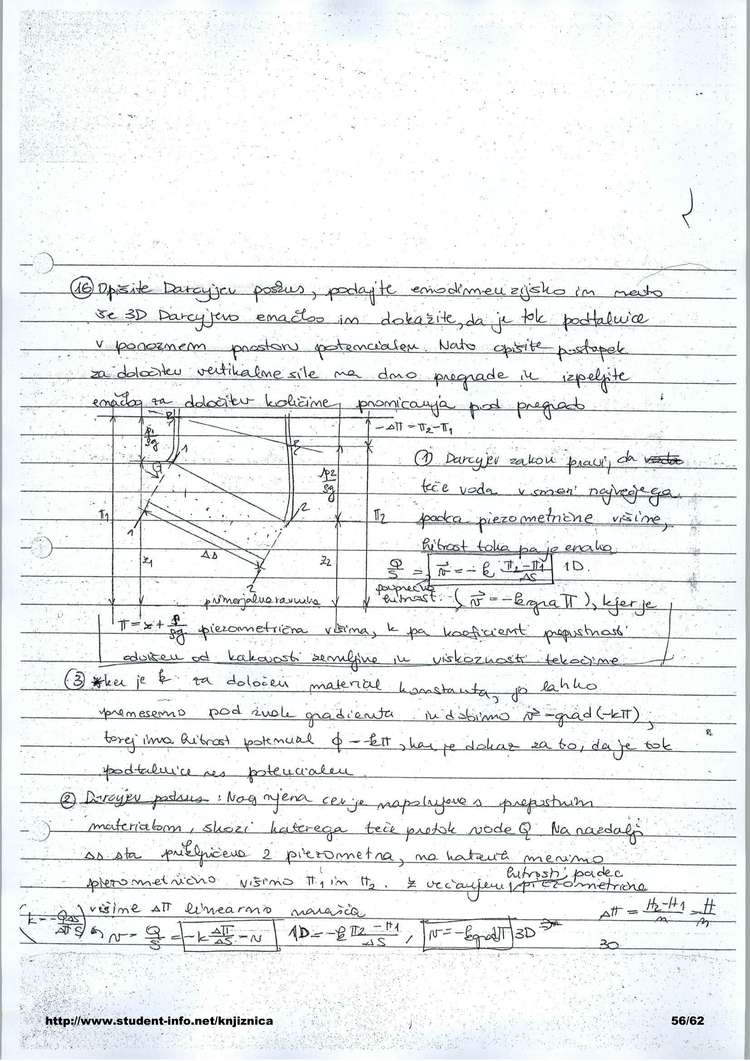 16 Opišite Darcyjev poskus, podajte enodimenzijsko in nato
še 3D Darcyjevo enačbo in dokažite, da je tok podtalnice
v poroznem prostoru potencialen. Nato opišite postopek
za določitev vertikalne sile na dno pregrade in izpeljite
enačbo za določitev količine pronicanja pod pregrado
-Δπ = π2-π1
p1/ρg
1
① Darcyjev zakon pravi, da
teče voda v smeri največjega
p2/ρg
2
padca piezometrične višine,
π1
π2
hitrost toka pa je enaka
z1
Δs
z2
Q/S = v = -k (π2-π1)/Δs 1D.
1
2
primerjalna ravnina
povprečna hitrost. (v = -k grad π), kjer je
π = z + p/ρg piezometrična višina, k pa koeficient prepustnosti
odvisen od kakovosti zemljine in viskoznosti tekočine
③ ker je k za določen material konstanta, jo lahko
prenesemo pod znak gradienta in dobimo v = grad(-kπ),
torej ima hitrost potencial ϕ = -kπ, kar je dokaz za to, da je tok
podtalnice res potencialen.
② Darcyjev poskus: Nagnjena cev je napolnjena s prepustnim
materialom, skozi katerega teče pretok vode Q. Na razdalji
Δs sta priključena 2 piezometra, na katerih merimo
piezometrično višino π1 in π2. Z večanjem hitrosti padec piezometrične
višine Δπ linearno narašča
k = -QΔs/ΔπS
v = Q/S = -k Δπ/Δs = v
1D = -k (π2-π1)/Δs, v = -k grad π 3D
Δπ = (H2-H1)/n = H/n
30
http://www.student-info.net/knjiznica
56/62